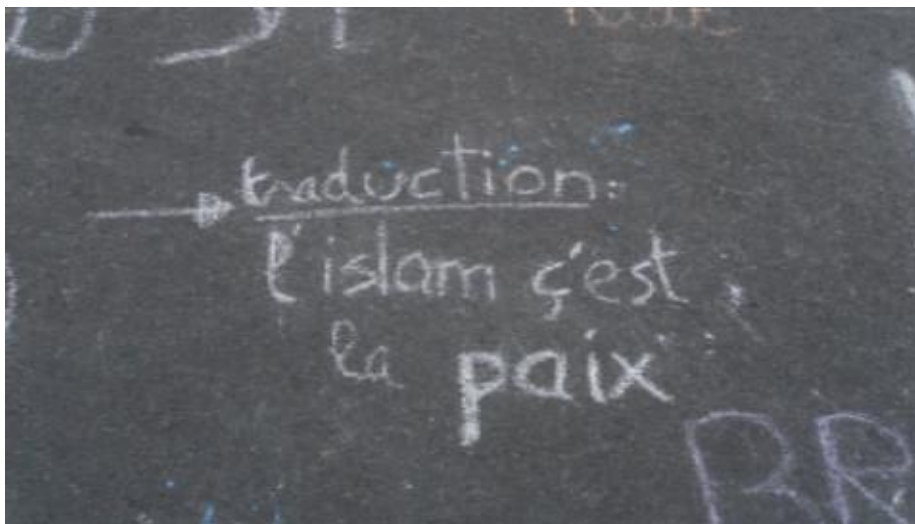 traduction:
l'islam ç'est
la paix